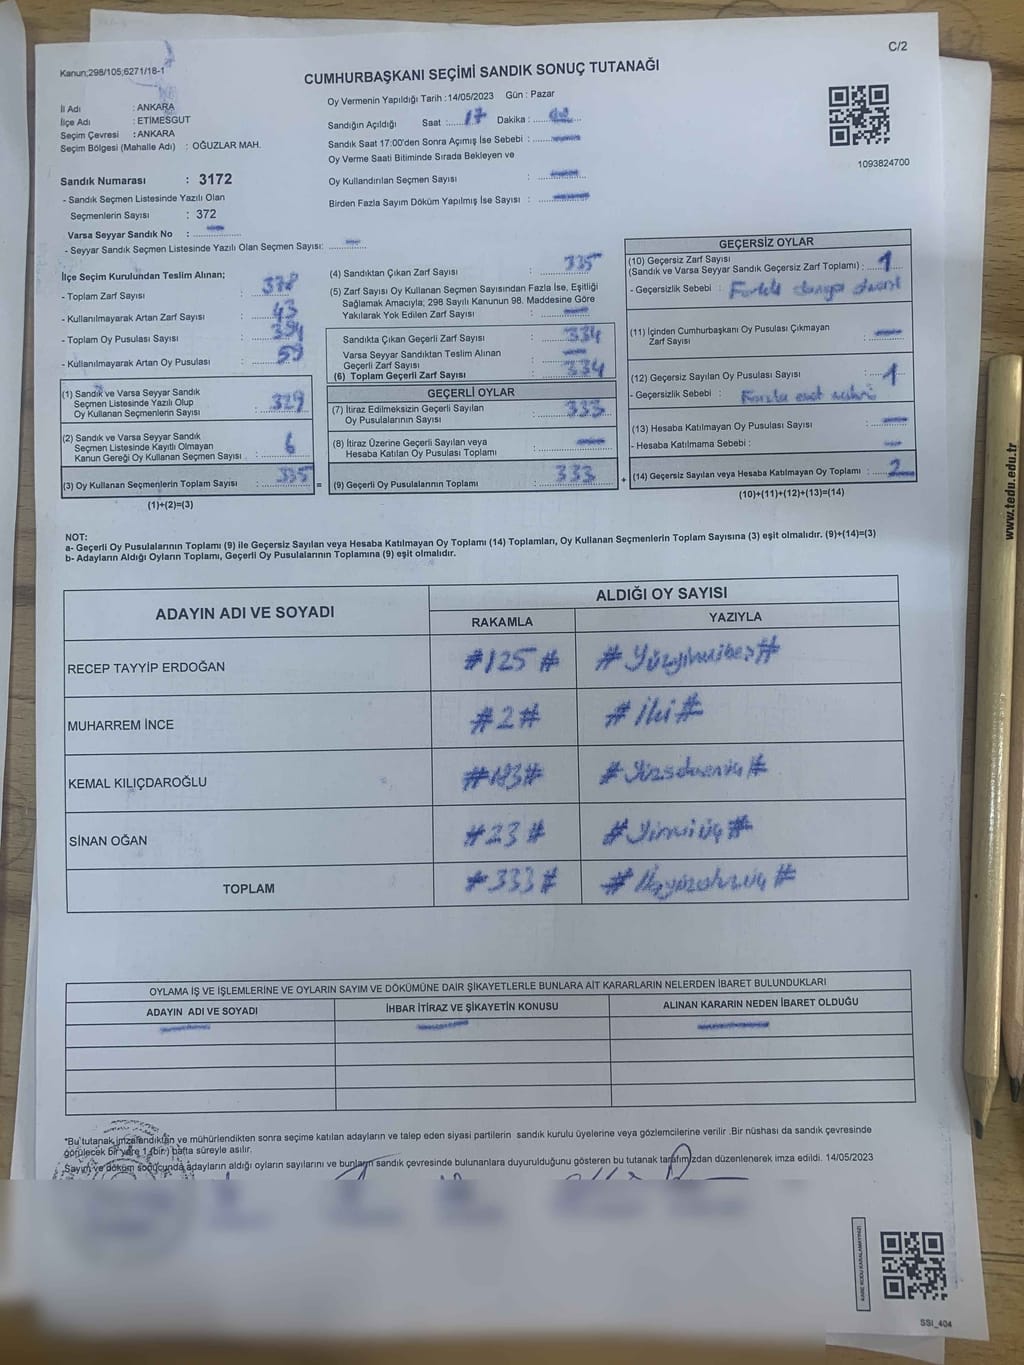 C/2
Kanun;298/105;6271/18-1
CUMHURBAŞKANI SEÇİMİ SANDIK SONUÇ TUTANAĞI
İl Adı : ANKARA
İlçe Adı : ETİMESGUT
Seçim Çevresi : ANKARA
Seçim Bölgesi (Mahalle Adı) : OĞUZLAR MAH.
Sandık Numarası : 3172
- Sandık Seçmen Listesinde Yazılı Olan
Seçmenlerin Sayısı : 372
Varsa Seyyar Sandık No :
- Seyyar Sandık Seçmen Listesinde Yazılı Olan Seçmen Sayısı:
Oy Vermenin Yapıldığı Tarih :14/05/2023 Gün : Pazar
Sandığın Açıldığı Saat : 17 Dakika :
Sandık Saat 17:00'den Sonra Açımış İse Sebebi :
Oy Verme Saati Bitiminde Sırada Bekleyen ve
Oy Kullandırılan Seçmen Sayısı :
Birden Fazla Sayım Döküm Yapılmış İse Sayısı :
1093824700
İlçe Seçim Kurulundan Teslim Alınan;
- Toplam Zarf Sayısı : 378
- Kullanılmayarak Artan Zarf Sayısı : 43
- Toplam Oy Pusulası Sayısı : 394
- Kullanılmayarak Artan Oy Pusulası : 59
(1) Sandık ve Varsa Seyyar Sandık
Seçmen Listesinde Yazılı Olup
Oy Kullanan Seçmenlerin Sayısı : 329
(2) Sandık ve Varsa Seyyar Sandık
Seçmen Listesinde Kayıtlı Olmayan
Kanun Gereği Oy Kullanan Seçmen Sayısı : 6
(3) Oy Kullanan Seçmenlerin Toplam Sayısı : 335 =
(1)+(2)=(3)
(4) Sandıktan Çıkan Zarf Sayısı : 335
(5) Zarf Sayısı Oy Kullanan Seçmen Sayısından Fazla İse, Eşitliği
Sağlamak Amacıyla; 298 Sayılı Kanunun 98. Maddesine Göre
Yakılarak Yok Edilen Zarf Sayısı :
Sandıkta Çıkan Geçerli Zarf Sayısı : 334
Varsa Seyyar Sandıktan Teslim Alınan
Geçerli Zarf Sayısı :
(6) Toplam Geçerli Zarf Sayısı : 334
GEÇERLİ OYLAR
(7) İtiraz Edilmeksizin Geçerli Sayılan
Oy Pusulalarının Sayısı : 333
(8) İtiraz Üzerine Geçerli Sayılan veya
Hesaba Katılan Oy Pusulası Toplamı :
(9) Geçerli Oy Pusulalarının Toplamı : 333 +
GEÇERSİZ OYLAR
(10) Geçersiz Zarf Sayısı
(Sandık ve Varsa Seyyar Sandık Geçersiz Zarf Toplamı) : 1
- Geçersizlik Sebebi : Farklı
(11) İçinden Cumhurbaşkanı Oy Pusulası Çıkmayan
Zarf Sayısı :
(12) Geçersiz Sayılan Oy Pusulası Sayısı : 1
- Geçersizlik Sebebi : Fazla
(13) Hesaba Katılmayan Oy Pusulası Sayısı :
- Hesaba Katılmama Sebebi :
(14) Geçersiz Sayılan veya Hesaba Katılmayan Oy Toplamı : 2
(10)+(11)+(12)+(13)=(14)
NOT:
a- Geçerli Oy Pusulalarının Toplamı (9) ile Geçersiz Sayılan veya Hesaba Katılmayan Oy Toplamı (14) Toplamları, Oy Kullanan Seçmenlerin Toplam Sayısına (3) eşit olmalıdır. (9)+(14)=(3)
b- Adayların Aldığı Oyların Toplamı, Geçerli Oy Pusulalarının Toplamına (9) eşit olmalıdır.
ADAYIN ADI VE SOYADI
ALDIĞI OY SAYISI
RAKAMLA YAZIYLA
RECEP TAYYİP ERDOĞAN #125# #Yüzyirmibeş#
MUHARREM İNCE #2# #İki#
KEMAL KILIÇDAROĞLU #183# #Yüzseksenüç#
SİNAN OĞAN #23# #Yirmiüç#
TOPLAM #333# #Üçyüzotuzüç#
OYLAMA İŞ VE İŞLEMLERİNE VE OYLARIN SAYIM VE DÖKÜMÜNE DAİR ŞİKAYETLERLE BUNLARA AİT KARARLARIN NELERDEN İBARET BULUNDUKLARI
ADAYIN ADI VE SOYADI İHBAR İTİRAZ VE ŞİKAYETİN KONUSU ALINAN KARARIN NEDEN İBARET OLDUĞU
*Bu tutanak imzalandıktan ve mühürlendikten sonra seçime katılan adayların ve talep eden siyasi partilerin sandık kurulu üyelerine veya gözlemcilerine verilir .Bir nüshası da sandık çevresinde
görülecek bir yere 1 (bir) hafta süreyle asılır.
Sayım ve döküm sonucunda adayların aldığı oyların sayılarını ve bunların sandık çevresinde bulunanlara duyurulduğunu gösteren bu tutanak tarafımızdan düzenlenerek imza edildi. 14/05/2023
KARE KODU KARALAMAYINIZ!
SSI_404
www.tedu.edu.tr